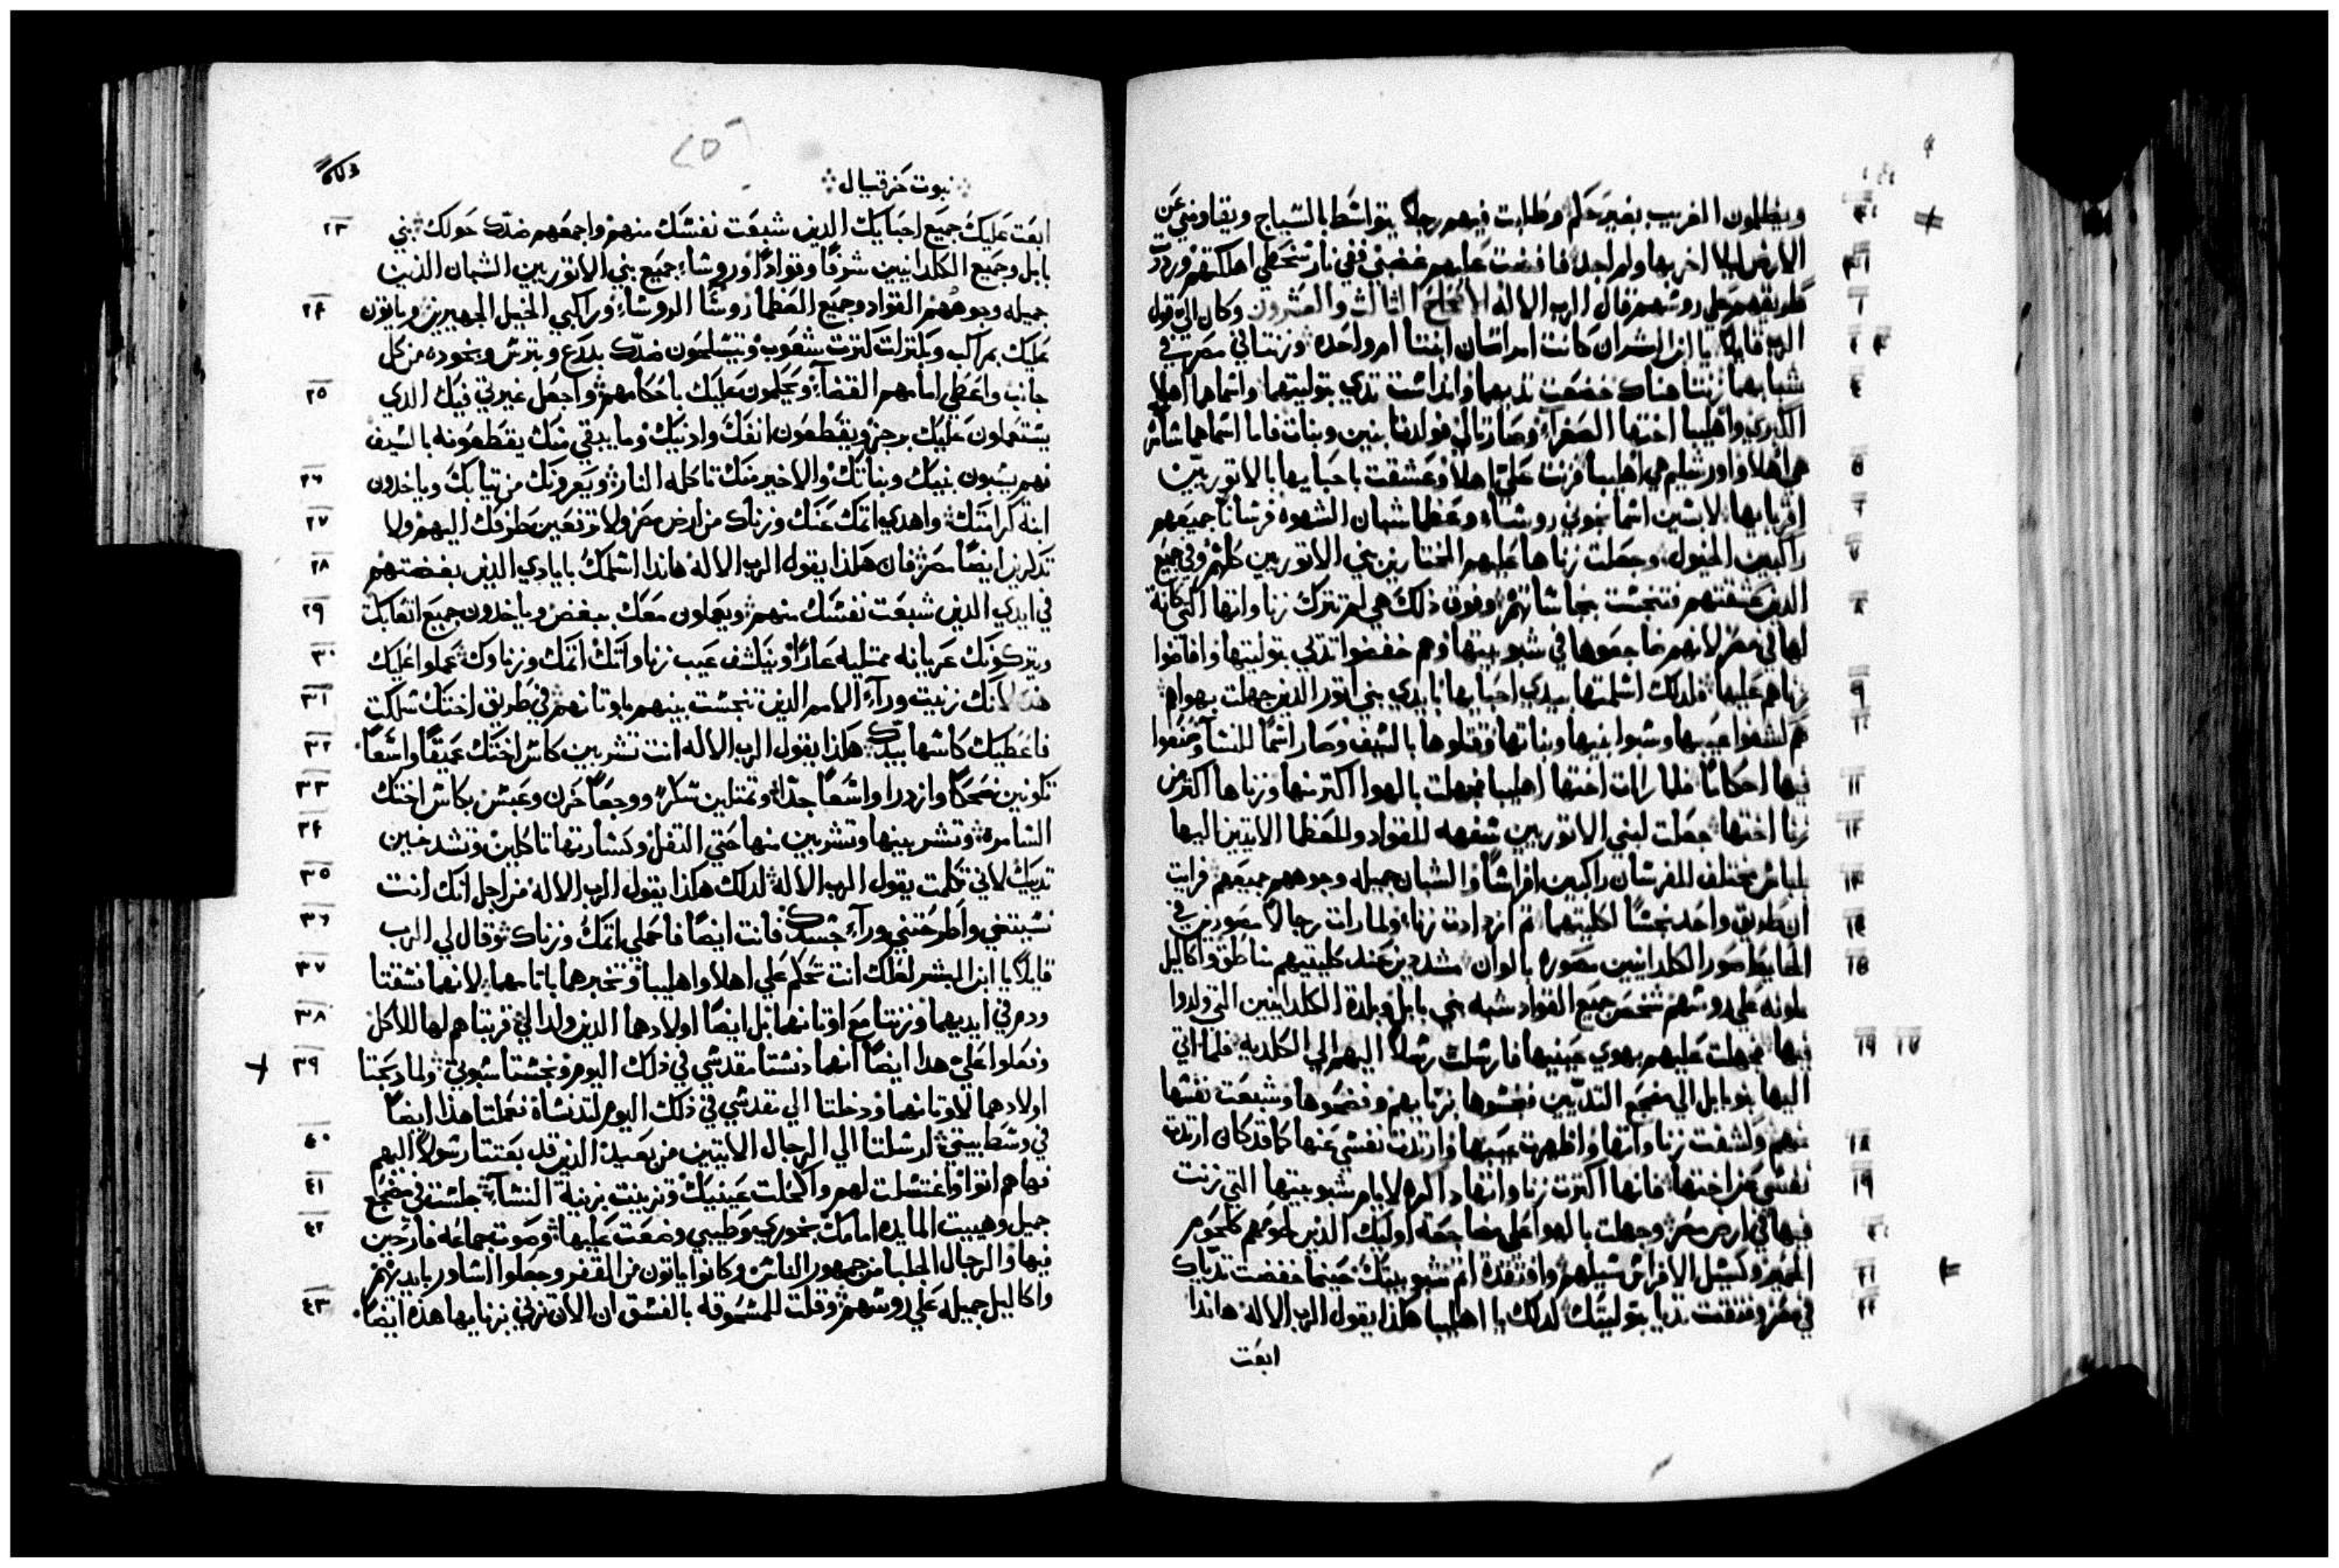 ويظلمون الغريب بغير حكم وطلبت فيهم رجلا يتواسط بالسياج ويقاومني عن
الارض ليلا اخربها ولم اجد فافضت عليهم غضبي ففي نار سخطي اهلكتهم ورددت
طريقهم علي روسهم قال الرب الاله الاصحاح الثالث والعشرون وكان الي قول
الرب قايلا يا ابن البشر ان كانت امراتان ابنتا ام واحده وزنتا في مصر في
شبابهما زنتا هناك خضعت ثديهما وانداست تدي بتوليتهما واسماهما اهلا
الكبري واهليبا اختها الصغرا وصارتا لي فولدتا بنين وبنات فاما اسماهما سامره
هي اهلا واورشليم هي اهليبا فزنت علي اهلا وعشقت باحبايها بالاتوريين
اقربايها لابسين اسمانجوني روسا وعظما شبان الشهوه فرسانا جميعهم
راكبين الخيول وجعلت زناها عليهم المختارين بني الاتوريين كلهم وفي جميع
الدين عشقتهم فتنجست بنجاساتهم وفوق ذلك هي لم تترك زناواتها التي كانت
لها في مصر لانهم ضاجعوها في شبوبيتها وهم خفضوا تدي بتوليتها وافاضوا
زناهم عليها فلدلك اسلمتها بيدي احبايها بايدي بني اتور الدين جهلت بهواهم
هم كشفوا عيبها وسبوا بنيها وبناتها وقتلوها بالسيف وصار اسما للنسا وصنعوا
فيها احكاما فلما رات اختها اهليبا فجهلت بالهوا اكتر منها وزناها اكتر من
زنا اختها جعلت لبني الاتوريين سفهه للقواد وللعظما الاتيين اليها
بلباس مختلف للفرسان راكبين افراسا والشبان جميله وجوههم جميعهم فرايت
ان طريق واحد نجسا لكليتهما ثم ازدادت زناء ولما رات رجالا مصورين في
الحايط صور الكلدانيين مصوره بالوان مشددين عند كليتيهم مناطق واكاليل
ملونه علي روسهم شخص جميع القواد شبه بني بابل وبلدة الكلدانيين التي ولدوا
فيها فجهلت عليهم بهوي عينيها فارسلت رسلا اليهم الي الكلديه فلما اتي
اليها بنو بابل الي مضجع التديين نجسوها بزنايهم وفضحوها وشبعت نفسها
منهم وكشفت زناواتها واظهرت عيبها وارتدت نفسي عنها كما قد كان ارتدت
نفسي من اختها فانها اكترت زناواتها داكره لايام شبوبيتها التي زنت
فيها في ارض مصر وجهلت بالهوا علي مضاجعة اوليك الذين لحومهم كلحوم
الحمير وكسيل الافراس سيلهم وافتقدة اثم شبوبيتك حينما خفضت تدياك
في مصر وفتقت تديا بتوليتك لدلك يا اهليبا هكذا يقول الرب الاله هاندا
ابعت
نبوت حزقيال
ابعت عليك جميع احبايك الدين شبعت نفسك منهم واجمعهم ضدك حولك بني
بابل وجميع الكلدانيين شرفا وقوادا وروسا جميع بني الاتوريين الشبان الذين
جميله وجوههم القواد وجميع العظما روسا الروسا وراكبي الخيل المجهيرين وياتون
عليك بمراكب وبمنزلت لترت شعوب ويتسلمون ضدك بدرع وبترس وبخوده من كل
جانب واعطي امامهم القضا ويحكمون عليك باحكامهم واجعل غيرتي فيك الدي
يستعملون عليك برجز ويقطعون انفك وادنيك وما يبقي منك يقطعونه بالسيف
فهم يسبون بنيك وبناتك والاخير منك تاكله النار ويعرونك من تيابك وياخدون
انية كرامتك واهدي اتمك عنك وزناك من ارض مصر ولا ترفعين طرفك اليهم ولا
تدكرين ايضا مصر فان هكذا يقول الرب الاله هاندا اسلمك بايادي الدين بغضتهم
في ايدي الذين شبعت نفسك منهم ويعملون معك ببغض وياخدون جميع اتعابك
ويتركونك عريانه ممتليه عارا وينكشف عيب زناواتك اتمك وزناوك عملوا عليك
هدا لانك زنيت ورآء الامم الذين تنجست بينهم باوتانهم في طريق اختك سلكت
فاعطيك كاسها بيدك هكذا يقول الرب الاله انت تشربين كاس اختك عميقا واسعا
تكونين ضحكا وازدرا واسعا جدا وتمتلين سكرا ووجعا حزن وعبس بكاس اختك
السامره وتشربينها وتشربين منها حتي التفل وكسارتها تاكلين وتشدخين
تدييك لاني تكلمت يقول الرب الاله لدلك هكذا يقول الرب الاله من اجل انك انت
نسيتني واطرحتني ورآء جسدك فانت ايضا فاحملي اتمك وزناك وقال لي الرب
قايلا يا ابن البشر لعلك انت تحكم علي اهلا واهليبا وتخبرهما باتامهما لانهما فسقتا
ودم في ايديهما وزنتا مع اوتانهما بل ايضا اولادهما الدين ولدا لي قربتاهم لها للاكل
وفعلوا علي هدا ايضا انهما دنستا مقدسي في ذلك اليوم ونجستا سبوتي ولما دبحتا
اولادهما لاوتانهما ودخلتا الي مقدسي في ذلك اليوم لتدنساه فعملتا هذا ايضا
في وسط بيتي ارسلتا الي الرجال الاتيين من بعيد الذين قد بعتتا رسولا اليهم
فهاهم اتوا واغتسلت لهم واكحلت عينيك وتزينت بزينة النسا جلست في مضجع
جميل وهييت المايده امامك بخوري وطيبي وضعت عليها وصوت جماعه فارحين
فيها والرجال الجلبا من جمهور الناس وكانوا ياتون من القفر وجعلوا اساور بايديهم
واكاليل جميله علي روسهم وقلت للمشموقه بالفسق ان الان تزني بزنايها هذه ايضا